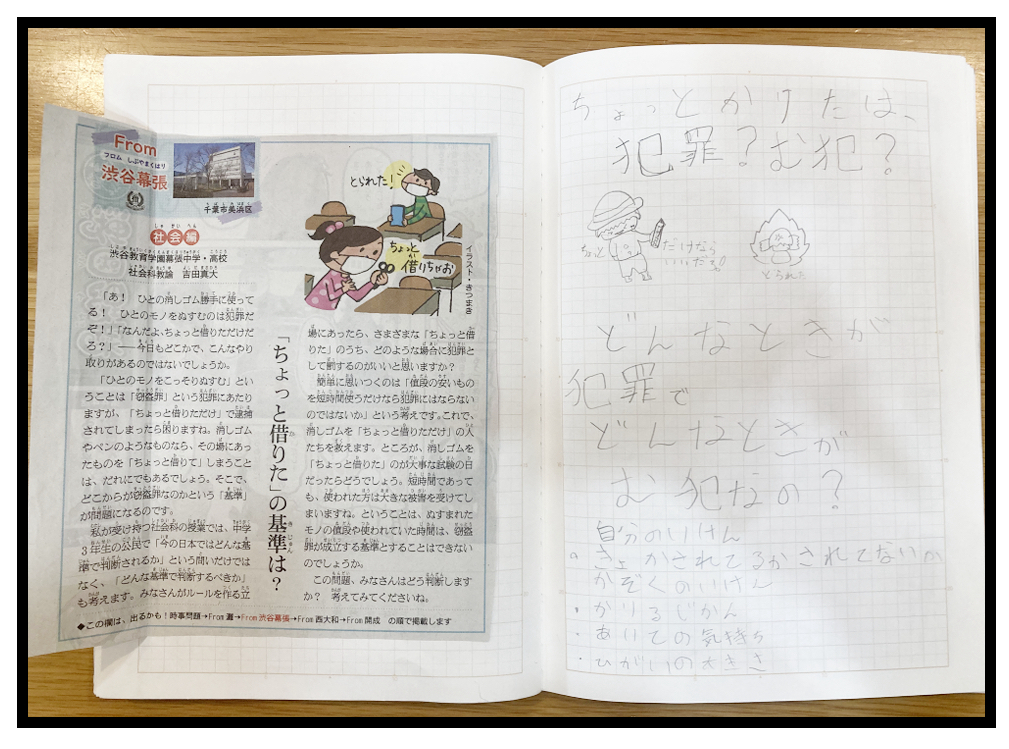 From
フロム しぶやまくはり
渋谷幕張
千葉市美浜区
社会編
渋谷教育学園幕張中学・高校
社会科教諭 吉田真大
とられた!
ちょっと
借りちゃお
イラスト・きつまき
「ちょっと借りた」の基準は?
「あ! ひとの消しゴム勝手に使って
る! ひとのモノをぬすむのは犯罪だ
ぞ!」「なんだよ、ちょっと借りただけだ
ろ?」── 今日もどこかで、こんなやり
取りがあるのではないでしょうか。
「ひとのモノをこっそりぬすむ」とい
うことは「窃盗罪」という犯罪にあたり
ますが、「ちょっと借りただけ」で逮捕
されてしまったら困りますね。消しゴム
やペンのようなものなら、その場にあっ
たものを「ちょっと借りて」しまうこと
は、だれにでもあるでしょう。そこで、
どこからが窃盗罪なのかという「基準」
が問題になるのです。
私が受け持つ社会科の授業では、中学
3年生の公民で「今の日本ではどんな基
準で判断されるか」という問いだけでは
なく、「どんな基準で判断するべきか」
も考えます。みなさんがルールを作る立
場にあったら、さまざまな「ちょっと借
りた」のうち、どのような場合に犯罪と
して罰するのがいいと思いますか?
簡単に思いつくのは「値段の安いもの
を短時間使うだけなら犯罪にはならない
のではないか」という考えです。これで、
消しゴムを「ちょっと借りただけ」の人
たちを救えます。ところが、消しゴムを
「ちょっと借りた」のが大事な試験の日
だったらどうでしょう。短時間であって
も、使われた方は大きな被害を受けてし
まいますね。ということは、ぬすまれた
モノの値段や使われていた時間は、窃盗
罪が成立する基準とすることはできない
のでしょうか。
この問題、みなさんはどう判断します
か? 考えてみてくださいね。
◆この欄は、出るかも!時事問題→From 灘→From 渋谷幕張→From 西大和→From 開成 の順で掲載します
ちょっとかりたは、
犯罪?む犯?
ちょっと
だけなら
いいだろ
とられた
どんなときが
犯罪で
どんなときが
む犯なの?
自分のいけん
・きょかされてるかされてないか
かぞくのいけん
・かりるじかん
・あいての気持ち
・ひがいの大きさ